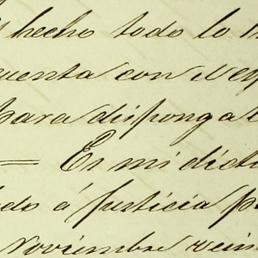 hecho todo lo
cuenta con
Para disponga
= Es mi dict
do á Justicia p
Noviembre vein